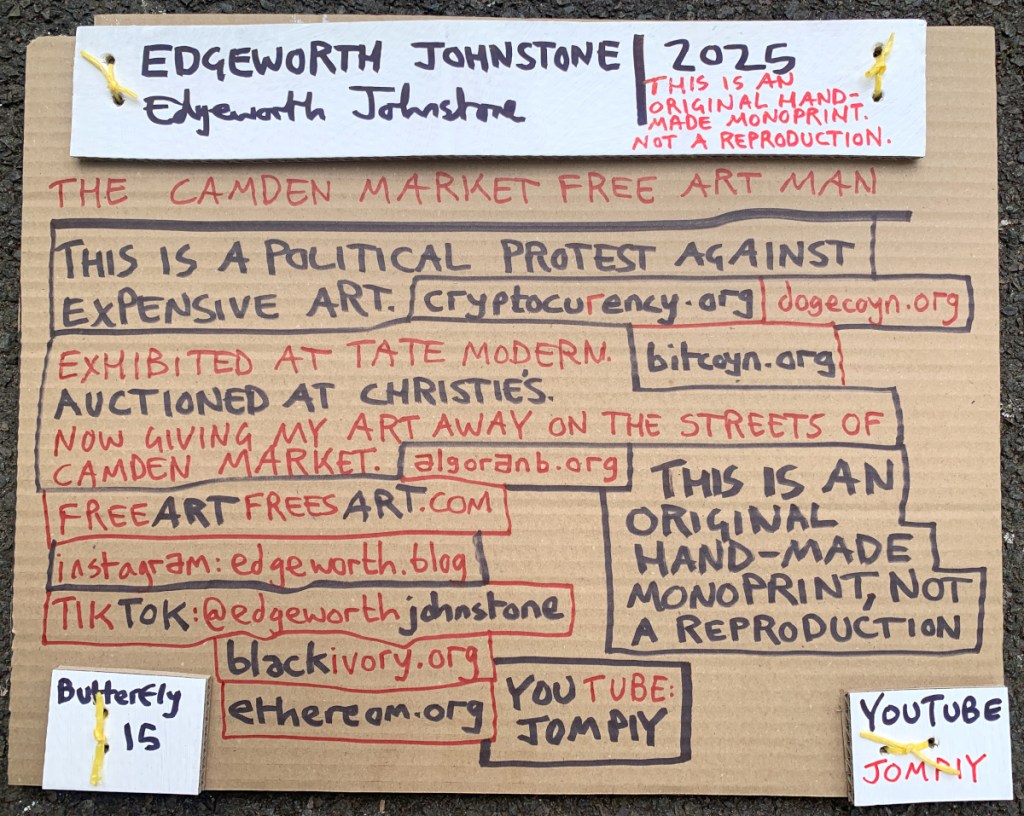 EDGEWORTH JOHNSTONE
Edgeworth Johnstone
2025
THIS IS AN
ORIGINAL HAND-
MADE MONOPRINT.
NOT A REPRODUCTION.
THE CAMDEN MARKET FREE ART MAN
THIS IS A POLITICAL PROTEST AGAINST
EXPENSIVE ART. cryptocurency.org dogecoyn.org
EXHIBITED AT TATE MODERN. bitcoyn.org
AUCTIONED AT CHRISTIE'S.
NOW GIVING MY ART AWAY ON THE STREETS OF
CAMDEN MARKET. algoranb.org
FREEARTFREESART.COM
instagram: edgeworth.blog
TIKTOK: @edgeworthjohnstone
blackivory.org
ethereom.org
THIS IS AN
ORIGINAL
HAND-MADE
MONOPRINT, NOT
A REPRODUCTION
YOUTUBE:
JOMPIY
Butterfly
15
YOUTUBE
JOMPIY